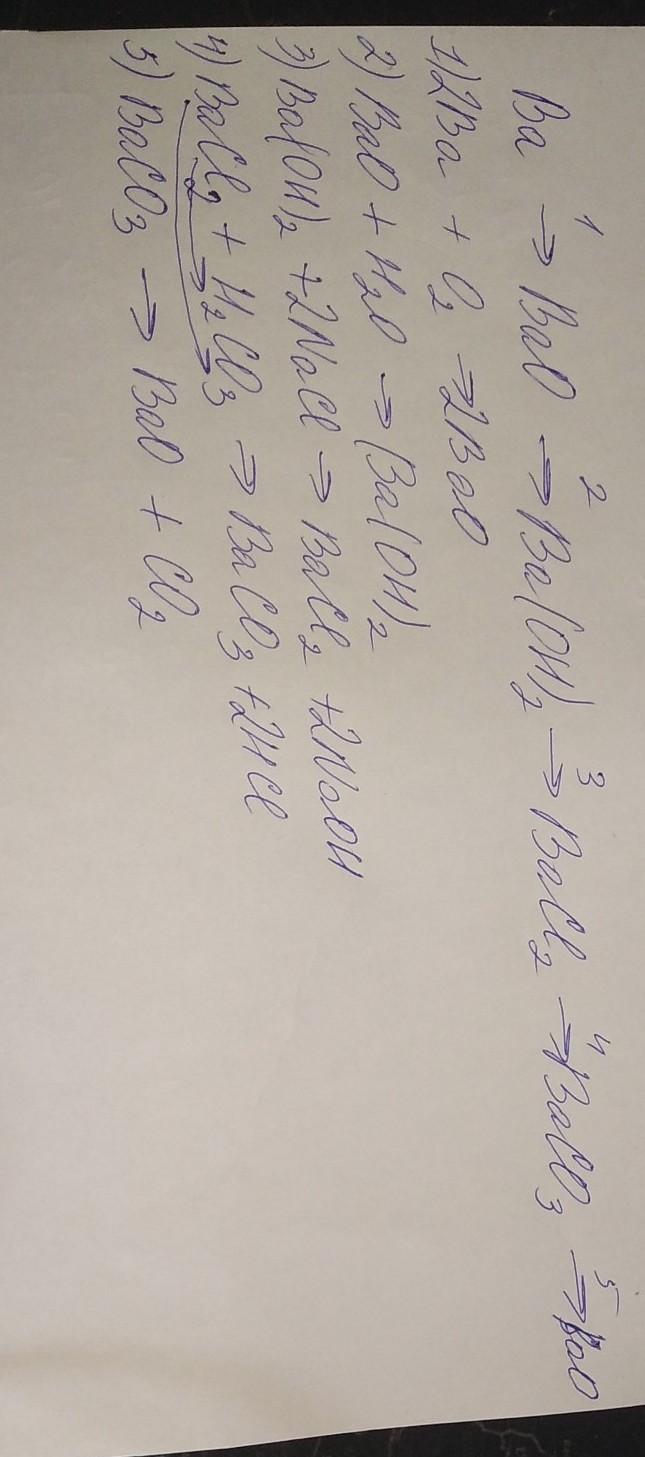 Ba →¹ BaO →² Ba(OH)₂ →³ BaCl₂ →⁴ BaCO₃ →⁵ BaO
1) 2Ba + O₂ → 2BaO
2) BaO + H₂O → Ba(OH)₂
3) Ba(OH)₂ + 2NaCl → BaCl₂ + 2NaOH
4) BaCl₂ + H₂CO₃ → BaCO₃ + 2HCl
5) BaCO₃ → BaO + CO₂